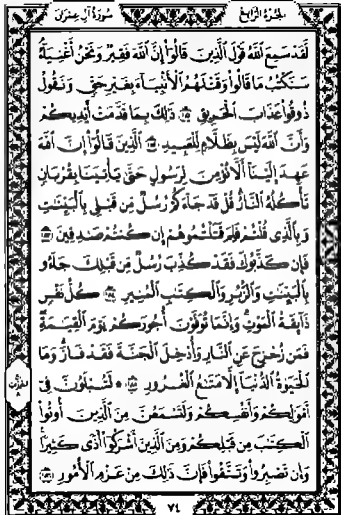 سُورَةُ آلِ عِمْرَانَ الجُزْءُ الرَّابِعُ
لَّقَدْ سَمِعَ ٱللَّهُ قَوْلَ ٱلَّذِينَ قَالُوٓا۟ إِنَّ ٱللَّهَ فَقِيرٌ وَنَحْنُ أَغْنِيَآءُ
سَنَكْتُبُ مَا قَالُوا۟ وَقَتْلَهُمُ ٱلْأَنۢبِيَآءَ بِغَيْرِ حَقٍّ وَنَقُولُ
ذُوقُوا۟ عَذَابَ ٱلْحَرِيقِ ١٨١ ذَٰلِكَ بِمَا قَدَّمَتْ أَيْدِيكُمْ
وَأَنَّ ٱللَّهَ لَيْسَ بِظَلَّامٍ لِّلْعَبِيدِ ١٨٢ ٱلَّذِينَ قَالُوٓا۟ إِنَّ ٱللَّهَ
عَهِدَ إِلَيْنَآ أَلَّا نُؤْمِنَ لِرَسُولٍ حَتَّىٰ يَأْتِيَنَا بِقُرْبَانٍ
تَأْكُلُهُ ٱلنَّارُ قُلْ قَدْ جَآءَكُمْ رُسُلٌ مِّن قَبْلِى بِٱلْبَيِّنَٰتِ
وَبِٱلَّذِى قُلْتُمْ فَلِمَ قَتَلْتُمُوهُمْ إِن كُنتُمْ صَٰدِقِينَ ١٨٣
فَإِن كَذَّبُوكَ فَقَدْ كُذِّبَ رُسُلٌ مِّن قَبْلِكَ جَآءُو
بِٱلْبَيِّنَٰتِ وَٱلزُّبُرِ وَٱلْكِتَٰبِ ٱلْمُنِيرِ ١٨٤ كُلُّ نَفْسٍ
ذَآئِقَةُ ٱلْمَوْتِ وَإِنَّمَا تُوَفَّوْنَ أُجُورَكُمْ يَوْمَ ٱلْقِيَٰمَةِ
فَمَن زُحْزِحَ عَنِ ٱلنَّارِ وَأُدْخِلَ ٱلْجَنَّةَ فَقَدْ فَازَ وَمَا
ٱلْحَيَوٰةُ ٱلدُّنْيَآ إِلَّا مَتَٰعُ ٱلْغُرُورِ ١٨٥ ۞ لَتُبْلَوُنَّ فِىٓ
أَمْوَٰلِكُمْ وَأَنفُسِكُمْ وَلَتَسْمَعُنَّ مِنَ ٱلَّذِينَ أُوتُوا۟
ٱلْكِتَٰبَ مِن قَبْلِكُمْ وَمِنَ ٱلَّذِينَ أَشْرَكُوٓا۟ أَذًى كَثِيرًا
وَإِن تَصْبِرُوا۟ وَتَتَّقُوا۟ فَإِنَّ ذَٰلِكَ مِنْ عَزْمِ ٱلْأُمُورِ ١٨٦
٧٤